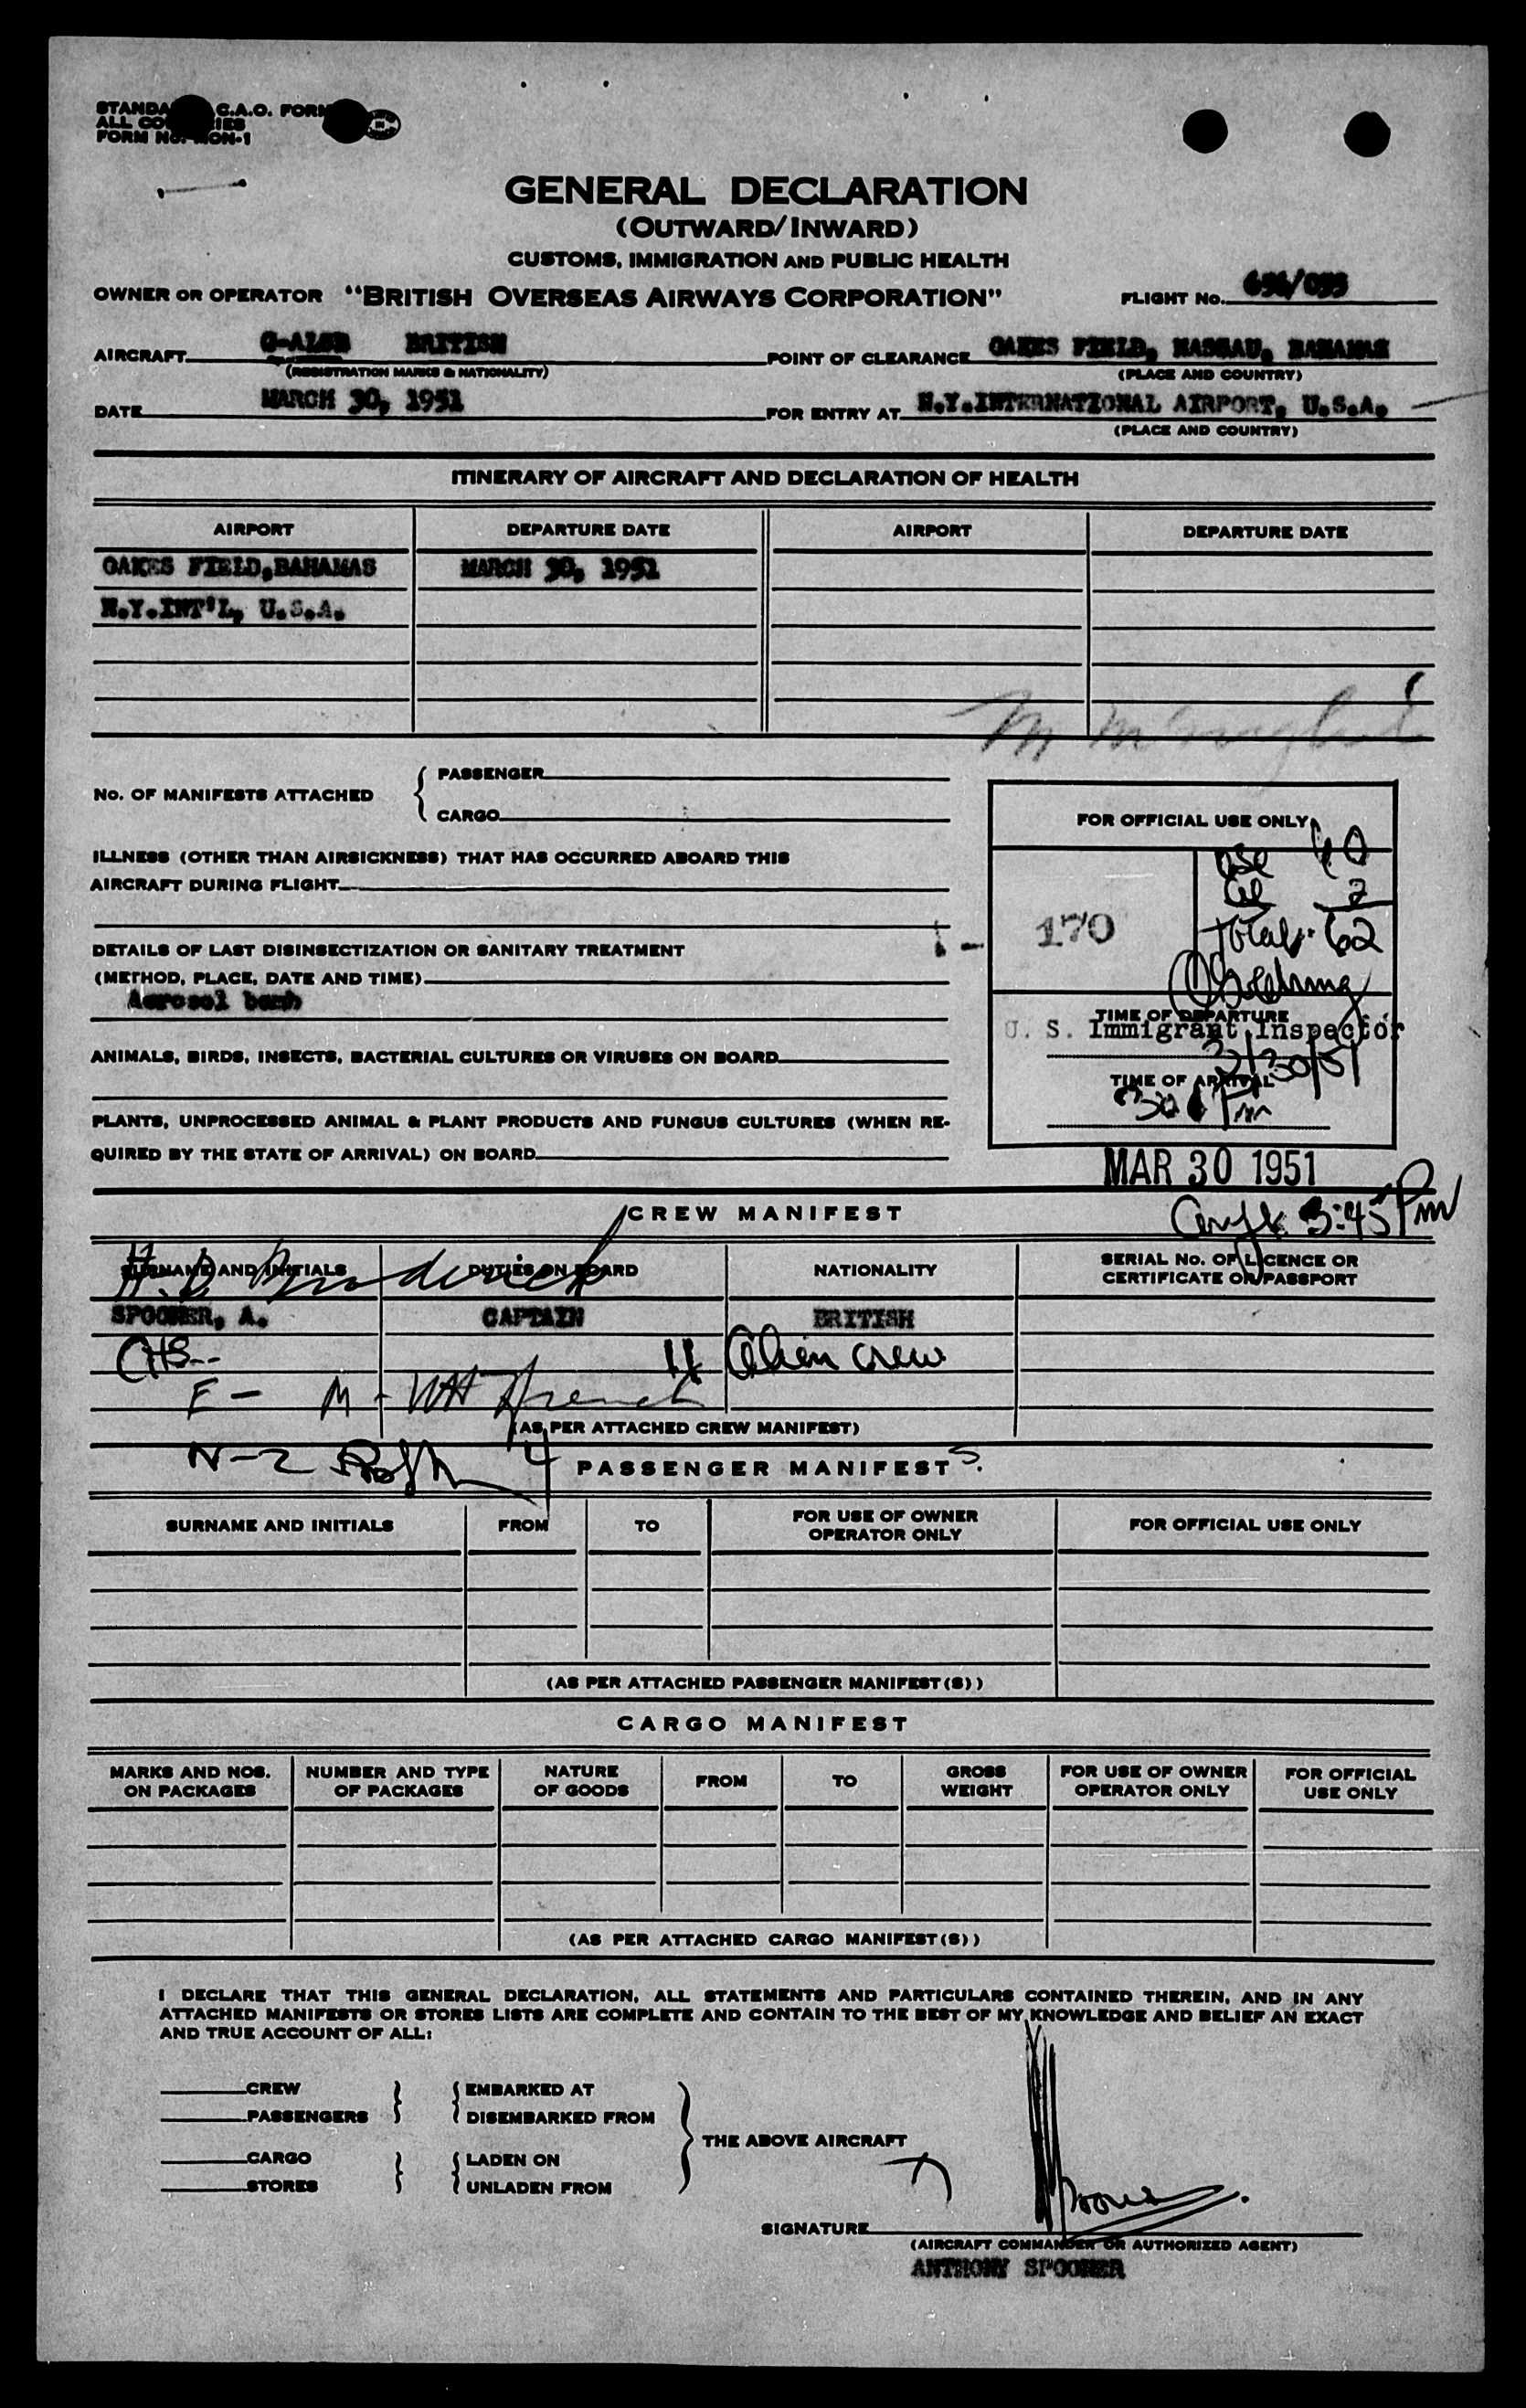 STANDA C.A.O. FORM
ALL CO IES
FORM NO. CON-1
GENERAL DECLARATION
(OUTWARD/INWARD)
CUSTOMS, IMMIGRATION AND PUBLIC HEALTH
OWNER OR OPERATOR "BRITISH OVERSEAS AIRWAYS CORPORATION" FLIGHT NO.
AIRCRAFT BRITISH POINT OF CLEARANCE OAKES FIELD, NASSAU, BAHAMAS
(REGISTRATION MARKS & NATIONALITY) (PLACE AND COUNTRY)
DATE MARCH 30, 1951 FOR ENTRY AT N.Y.INTERNATIONAL AIRPORT, U.S.A.
(PLACE AND COUNTRY)
ITINERARY OF AIRCRAFT AND DECLARATION OF HEALTH
AIRPORT DEPARTURE DATE AIRPORT DEPARTURE DATE
OAKES FIELD,BAHAMAS MARCH 30, 1951
N.Y.INT'L, U.S.A.
No. OF MANIFESTS ATTACHED
PASSENGER
CARGO
FOR OFFICIAL USE ONLY
ILLNESS (OTHER THAN AIRSICKNESS) THAT HAS OCCURRED ABOARD THIS
AIRCRAFT DURING FLIGHT
2
170 Total 62
DETAILS OF LAST DISINSECTIZATION OR SANITARY TREATMENT
(METHOD, PLACE, DATE AND TIME)
Aerosol bomb
TIME OF DEPARTURE
U. S. Immigrant Inspector
3/30/51
ANIMALS, BIRDS, INSECTS, BACTERIAL CULTURES OR VIRUSES ON BOARD
TIME OF ARRIVAL
Pm
PLANTS, UNPROCESSED ANIMAL & PLANT PRODUCTS AND FUNGUS CULTURES (WHEN RE-
QUIRED BY THE STATE OF ARRIVAL) ON BOARD
MAR 30 1951
3:45 Pm
CREW MANIFEST
SURNAME AND INITIALS DUTIES ON BOARD NATIONALITY SERIAL No. OF LICENCE OR
CERTIFICATE OR PASSPORT
SPOONER, A. CAPTAIN BRITISH
11 Alien crew
E - M -
(AS PER ATTACHED CREW MANIFEST)
N-2
PASSENGER MANIFEST S.
SURNAME AND INITIALS FROM TO FOR USE OF OWNER
OPERATOR ONLY FOR OFFICIAL USE ONLY
(AS PER ATTACHED PASSENGER MANIFEST(S))
CARGO MANIFEST
MARKS AND NOS.
ON PACKAGES NUMBER AND TYPE
OF PACKAGES NATURE
OF GOODS FROM TO GROSS
WEIGHT FOR USE OF OWNER
OPERATOR ONLY FOR OFFICIAL
USE ONLY
(AS PER ATTACHED CARGO MANIFEST(S))
I DECLARE THAT THIS GENERAL DECLARATION, ALL STATEMENTS AND PARTICULARS CONTAINED THEREIN, AND IN ANY
ATTACHED MANIFESTS OR STORES LISTS ARE COMPLETE AND CONTAIN TO THE BEST OF MY KNOWLEDGE AND BELIEF AN EXACT
AND TRUE ACCOUNT OF ALL:
CREW EMBARKED AT
PASSENGERS DISEMBARKED FROM
THE ABOVE AIRCRAFT
CARGO LADEN ON
STORES UNLADEN FROM
SIGNATURE
(AIRCRAFT COMMANDER OR AUTHORIZED AGENT)
ANTHONY SPOONER